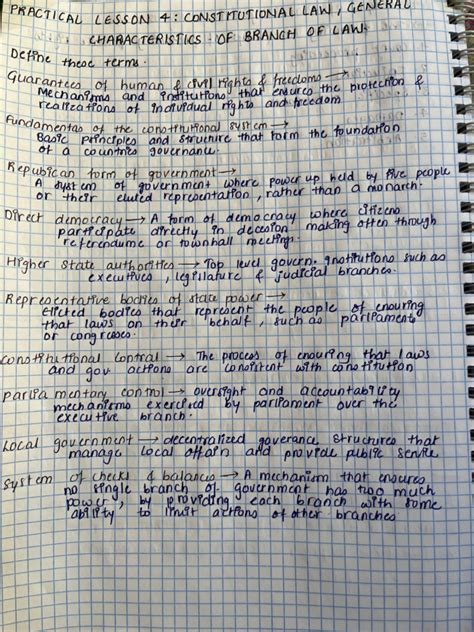 PRACTICAL LESSON 4: CONSTITUTIONAL LAW, GENERAL
CHARACTERISTICS OF BRANCH OF LAW.
Define these terms.
Guarantees of human & civil rights & freedoms →
Mechanisms and institutions that ensures the protection &
realizations of individual rights and freedom
Fundamentas of the constitutional system →
Basic principles and structure that form the foundation
of a countries governance.
Repubican form of government →
A system of government where power up held by five people
or their eluted representation, rather than a monarch.
Direct democracy → A form of democracy where citizens
participate directly in decesion making often through
referendums or townhall meetings.
Higher state authorities → Top level govern. institutions such as
executives, legislature & judicial branches.
Representative bodies of state power →
Elected bodies that represent the people of ensuring
that laws on their behalf, such as parliaments
or congresses.
Constitutional control → The process of ensuring that laws
and gov actions are consistent with constitution
Parlia mentary control → oversight and accountability
mechanisms exercised by parliament over the
executive branch.
Local government → decentralized goverance structures that
manage local affairs and provide public service
System of checks & balances → A mechanism that ensures
no single branch of government has too much
power, by providing each branch with some
ability to limit actions of other branches